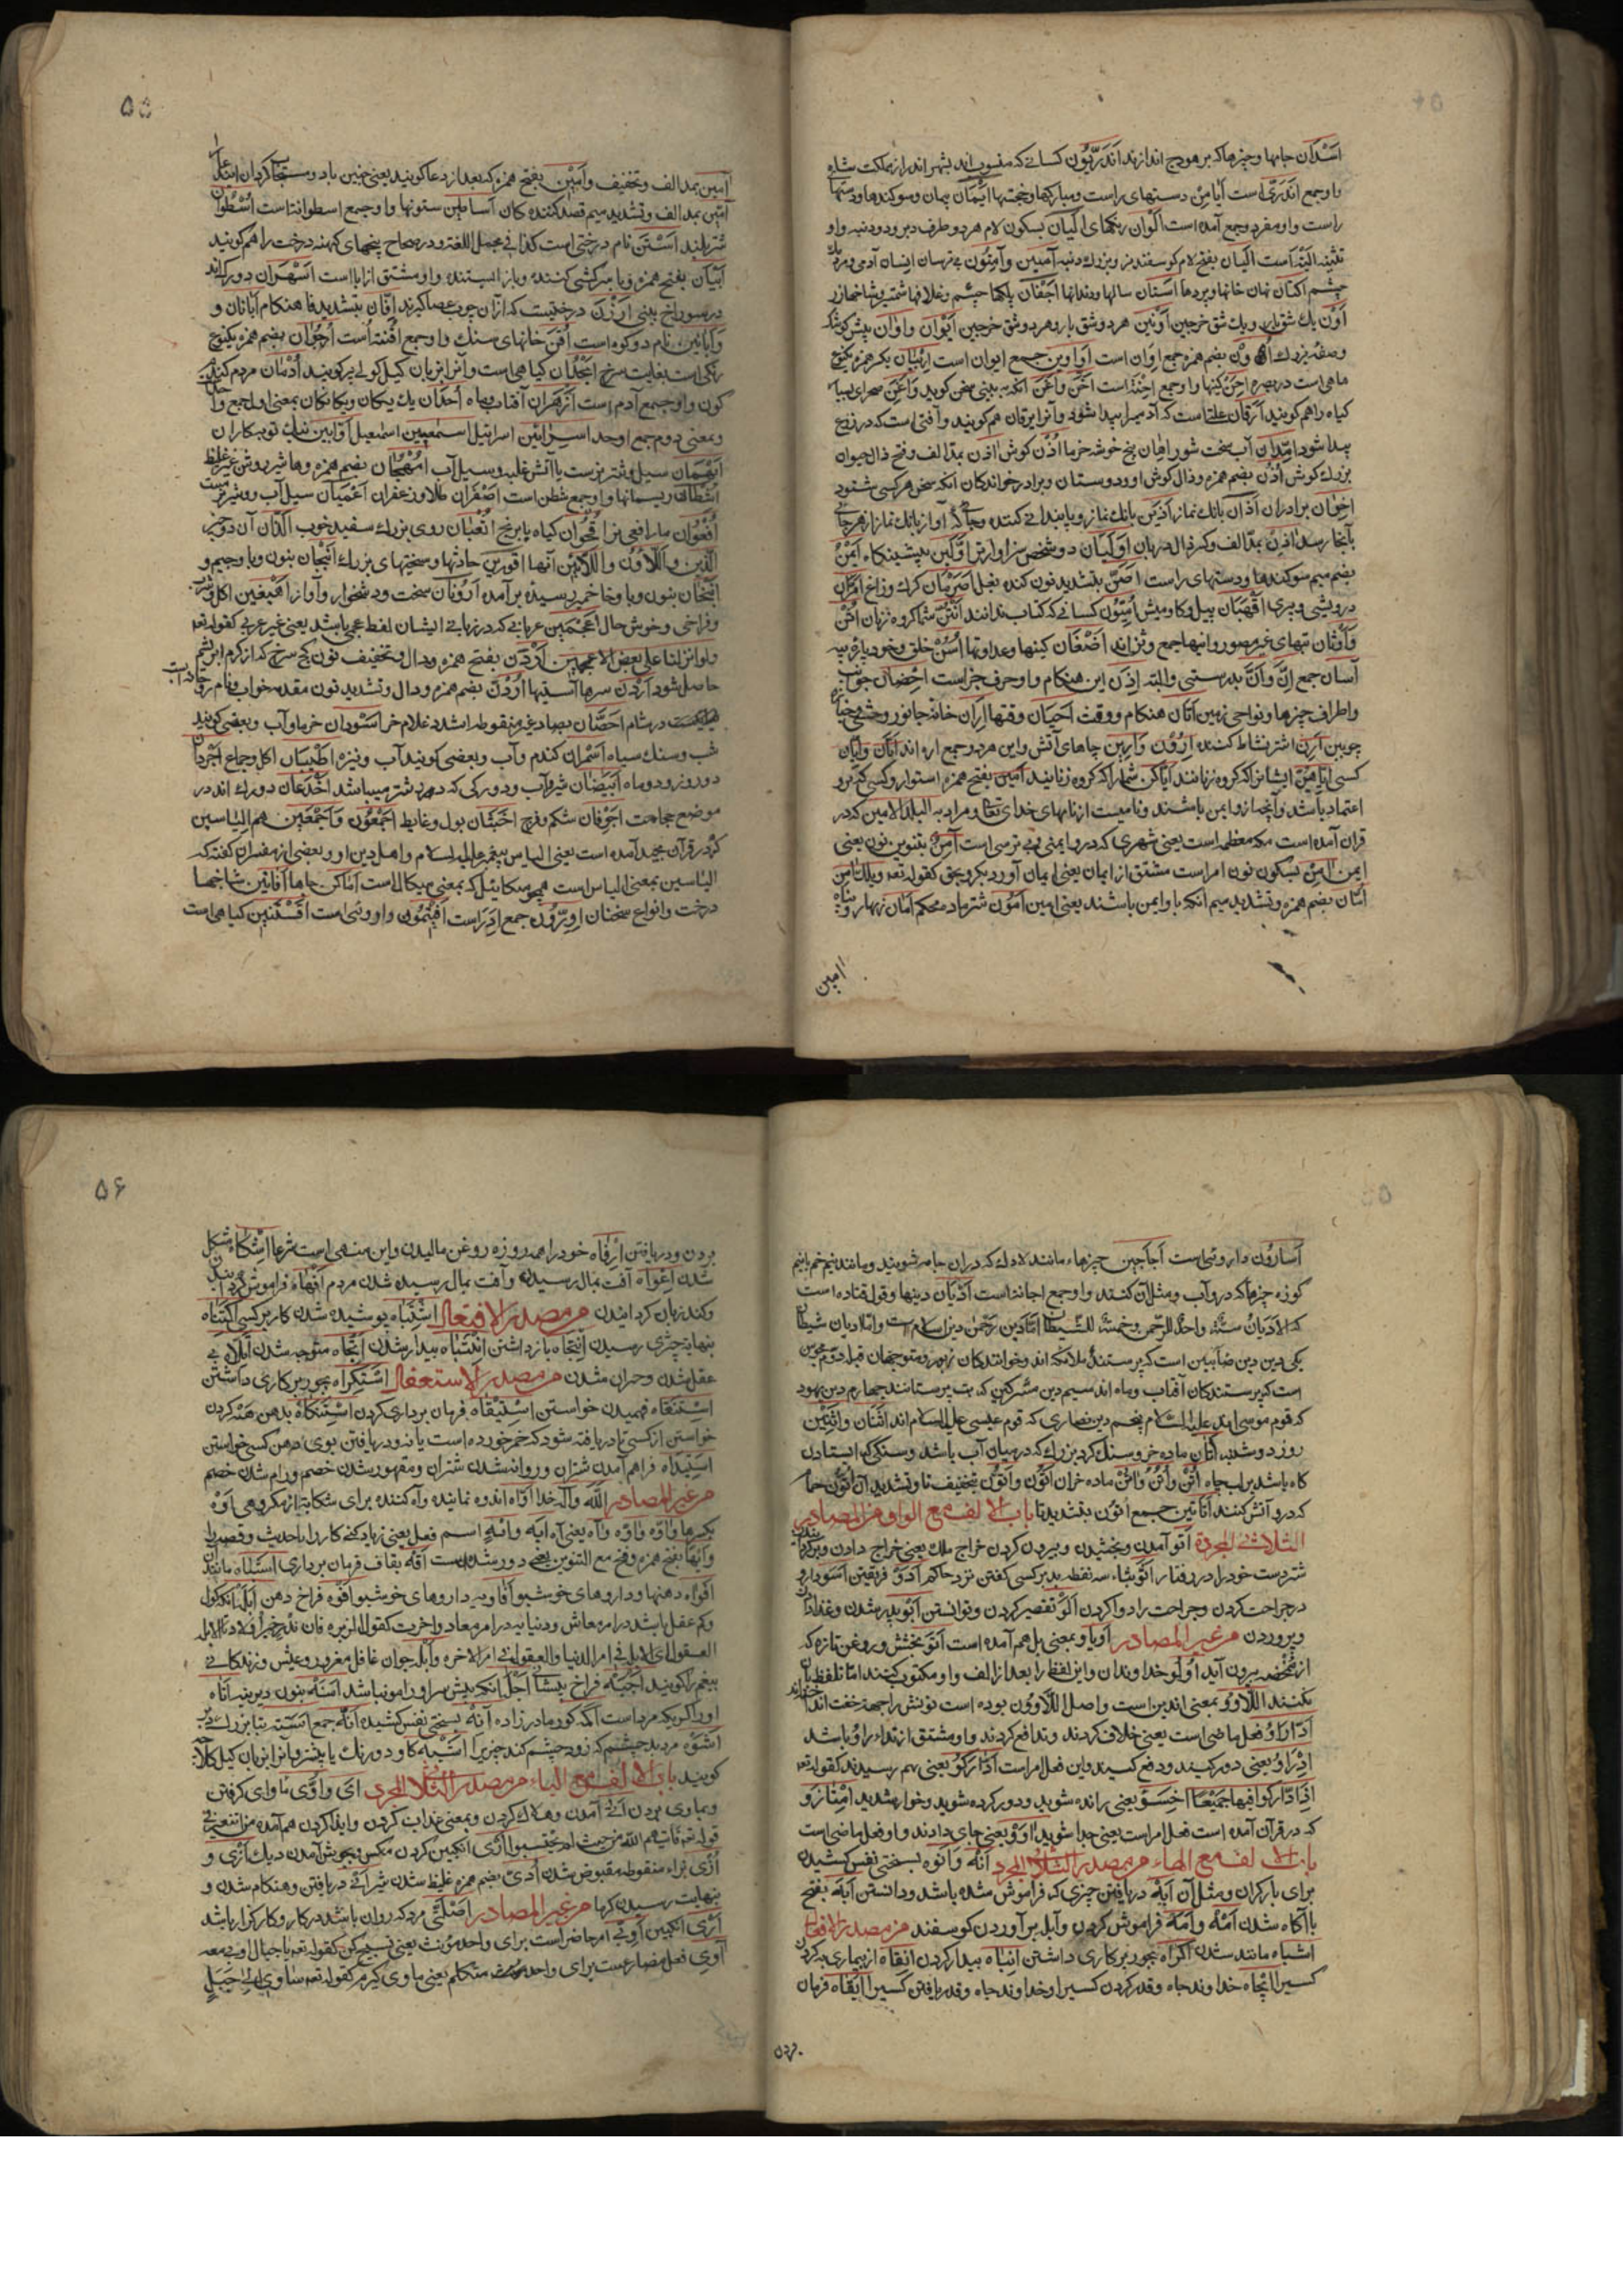 اسدان جامها و چیزها که بر هودج اندازند اندریون کسانی که منسوب اند بشهر اندر از مملکت شام
و او جمع اندری است ایامن دستهای راست و مبارکها و خجتها ایمان پیمان و سوکندها و دستها
راست و او مفرد و جمع آمده است اکوان رنکهای الیان بسکون لام هر دو طرف دبر و دو دنبه و او
تثنیه الیه است الیان بفتح لام کوسفند نر و بزرک دنبه آمنین و آمنون بی ترسان انسان آدمی و مردمک
چشم اکنان نهان خانها و پردها اسنان سالها و دندانها اجفان پلکها چشم و غلافها شمشیر و شاخها رز
اون یک شق بار و یک شق خرجین اونین هر دو شق بار و هر دو شق خرجین ایوان و اوان پیش کوشک
و صفه بزرک اون بضم همزه جمع اوان است اواوین جمع ایوان است اربیان بکسر همزه یکنوع
ماهی است در بصره احن کنها و او جمع احنة است اخن و اغن انکه به بینی سخن کوید و اغن صحرای بسیار
کیاه را هم کویند ارقان علتیست که آدمیرا پیدا شود و آنرا یرقان هم کویند و آفتی است که در زرع
پیدا شود امدان آب سخت شور اهان بیخ خوشه خرما اذن کوش اذن بمد الف و فتح ذال حیوان
بزرک کوش اذن بضم همزه و ذال کوش او و دوستان و برادر خواندکان انکه سخن هر کسی شنود
اخوان برادران اذان بانک نماز اذین بانک نماز و پایندانی کننده و جائی که آواز بانک نماز از هر جانب
بآنجا رسد اذن بمد الف و کسر ذال دربان اولیان دو شخص سزاوارتر اولین پیشینکاه ایمن
بضم میم سوکندها و دستهای راست اصن بتشدید نون کنده بغل اصرمان کرک و زاغ امران
درویشی و پیری اقهبان پیل و کاومیش امیون کسانی که کتاب ندانند انتن شما کروه زنان اثن
و اوثان بتهای غیر مصور و انها جمع وثن اند اضغان کینها و عداوتها اسن خلق و خود پاره پیه
آسان جمع ان و ان بدرستی و البته اذن این هنکام و او حرف جز است احضان جوانب
و اطراف چیزها و نواحی زمین آتان هنکام و وقت احیان وقتها اران خانه جانور وحشی و جنازه
چوبین ارن اشتر نشاط کننده ارون و ارین چاهای آتش و این هر دو جمع اره اند ایان و ایان
کسی ایاهن ایشانرا که کروه زنانند ایاکن شمارا که کروه زنانید امین بفتح همزه استوار و کسی که برو
اعتماد باشد و آنچه ازو ایمن باشند و نامیست از نامهای خدای تعا و مراد به البلد الامین که در
قران آمده است مکه معظمه است یعنی شهری که در و ایمنی و بی ترسی است آمن بتنوین نون یعنی
ایمن آمن بسکون نون امر است مشتق از ایمان یعنی ایمان آور و بکرو بحق کقوله تعه ویلک آمن
امان بضم همزه و تشدید میم انکه با و ایمن باشند یعنی امین امون شتر ماده محکم امان زنهار و پناه
امین
۵۵
آمین بمد الف و تخفیف و امین بفتح همزه که بعد از دعا کویند یعنی چنین باد و مستجاب کردان این دعا
آمین بمد الف و تشدید میم قصد کننده کان اساطین ستونها و او جمع اسطوانتاست اسطوان
شتر بلند استن نام درختی است کذا فی مجمل اللغة و در صحاح بیخهای کهنه درخت را هم کویند
ابیان بفتح همزه و یا سرکشی کننده و باز ایستنده و او مشتق از ابا است اسهران دو رک اند
در سوراخ بینی ارزن درختیست که ازان چوب عصا کیرند افان بتشدید فا هنکام ابانان و
و ابانین نام دو کوه است اقن خانهای سنک و او جمع اقنه است ارجوان بضم همزه یکنوع
رنکی است بغایت سرخ انجذان کیاهی است و آنرا بزبان کیل کولی پر کویند ادمان مردم کندم
کون و او جمع آدم است ازهران آفتاب و ماه احدان یک یکان و یکانکان بمعنی اول جمع واحد
و بمعنی دوم جمع اوحد اسرائین اسرائیل اسمعیین اسمعیل اوابین نیک توبه کاران
ایهمان سیل و شتر مست یا آتش غلبه و سیل آب امهجان بضم همزه و ها شیر روشن غیر غلیظ
اشطان ریسمانها و او جمع شطن است اصفران طلا و زعفران اعمیان سیل آب و شتر مست
افعوان مار افعی نر اقحوان کیاه بابونج اثعبان روی بزرک سفید خوب الذان آن دو چیز
الذین و اللاؤن و اللائین آنها اقورین حادثها و سختیهای بزرک انبجان بنون و با و جیم و
انبخان بنون و با و خا خمیر رسیده برآمده ارونان سخت و دشخوار و آواز اهیغین اکل و شرب
و فراخی و خوش حال اعجمین عربانی که در زبانهای ایشان لفظ عجمی باشد یعنی غیر عربی کقوله تعه
ولو انزلنا علی بعض الاعجمین اردن بفتح همزه و دال و تخفیف نون کچ سرخ که از کرم ابریشم
حاصل شود اردن سرها آستینها اردن بضم همزه و دال و تشدید نون مقدمه خواب و نام
در شام احصان بصاد غیر منقوطه امشده غلام خر اسودان خرما و آب و بعضی کویند
شب و سنک سیاه اسمران کندم و آب و بعضی کویند آب و نیزه اطیبان اکل و جماع اجردان
دو روز و دو ماه ابیضان شیر و آب و دو رکی که در شتر میباشد اخدعان دو رک اند در
موضع حجامت اجوفان شکم و فرج اخبثان بول و غایط اجمعون و اجمعین هم الیاسین
که در قرآن مجید آمده است یعنی الیاس پیغمبر علیه السلام و اهل دین او و بعضی از مفسران کفته که
الیاسین بمعنی الیاس است همچو میکائیل که بمعنی میکال است اماکن جاها افانین شاخها
درخت و انواع سخنان اوزون جمع اوز است افتیمون داروئی است افسنتین کیاهی است
اسارون داروئی است اجاجین چیزها، مانند لادک که دران جامه شویند و مانند نیم خم یا نیم
کوزه چیزها که درو آب و مثل آن کنند و او جمع اجانتاست ادیان دینها و قول قتاده است
که الادیان ستة واحد للرحمن و خمسة للشیطان اما دین رحمن دین اسلام ست و اما ادیان شیطان
یکی دین دین صابیین است که پرستندهٔ ملائکه اند و خوانندکان زبور و متوجهان قبله دوم مجوس
است که پرستندکان آفتاب و ماه اند سیم دین مشرکین که بت پرستانند چهارم دین یهود
که قوم موسی اند علیه السلام پنجم دین نصاری که قوم عیسی علیه السلام اند اثنان و اثنین
روز دوشنبه اتان ماده خر و سنک کرد بزرک که در میان آب باشد و سنکی که ایستادن
کاه باشد بر لب چاه اتن و اتن و اتن ماده خران اتون و اتون بتخفیف تا و تشدید آن اتون حمام
که درو آتش کنند اتاتین جمع اتون بتشدید تا باب الالف مع الواو من المصادر
الثلاثی المجردة اتو آمدن و بخشیدن و بیرون کردن خراج ملک یعنی خراج دادن و برکردانیدن
شتر دست خود را در رفتار اثو بثاء سه نقطه بد بر کسی کفتن نزد حاکم ادو فریفتن اسو دارو
در جراحت کردن و جراحت را دوا کردن الو تقصیر کردن و توانستن ابو پدر شدن و غذا دادن
و پروردن من غیر المصادر او یا و بمعنی بل هم آمده است اتو بخشش و روغن تازه که
از مخضه بیرون آید اولو خداوندان و این لفظ را بعد از الف واو مکتوب کنند اما تلفظ بان
نکنند اللاؤو بمعنی الذین است و اصل اللاوون بوده است نونش را جهة خفت انداخته اند
اداراو فعل ماضی است یعنی خلاف کردند و تدافع کردند و او مشتق از تداراو باشد
ادراو یعنی دور کنید و دفع کنید و این فعل امر است ادارکو یعنی بهم رسیدند کقوله تعه
اذا ادارکوا فیها جمیعا اخسئو یعنی رانده شوید و دور کرده شوید و خوار شدید امتازو
که در قرآن آمده است فعل امر است یعنی جدا شوید اوو یعنی جای دادند و او فعل ماضی است
باب الالف مع الهاء من مصدر الثلاثی المجرد انه و انوه بسختی نفس کشیدن
برای بارکران و مثل آن ابه دریافتن چیزی که فراموش شده باشد و دانستن ابه بفتح
با آکاه شدن امه و امه فراموش کردن و آبله برآوردن کوسفند من مصدر الافعال
اشباه مانند شدن اکراه بجور بر کاری داشتن انباه بیدار کردن انقاه از بیماری به کردن
کسیرا اتجاه خداوند جاه و قدر کردن کسیرا و خداوند جاه و قدر یافتن کسیرا ایقاه فرمان
بردن
۵۶
بردن و دریافتن ارفاه خود را همه روزه روغن مالیدن و این منهی است شرعا اشکاه مشکل
شدن اعواه آفت بمال رسیدن و آفت بمال رسیده شدن مردم افهاه فراموش کردانیدن
و کند زبان کردانیدن من مصدر الافتعال اشتباه پوشیده شدن کار بر کسی اکتناه
بنهایت چیزی رسیدن انتجاه باز داشتن انتباه بیدار شدن اتجاه متوجه شدن ایتلاه بی
عقل شدن و حیران شدن من مصدر الاستفعال استکراه بجور بر کاری داشتن
استفقاه فهمیدن خواستن استیقاه فرمان برداری کردن استنکاه بدهن هه کردن
خواستن از کسی تا دریافته شود که خمر خورده است یا نه و دریافتن بوی دهن کسی خواستن
استیداه فراهم آمدن شتران و روانه شدن شتران و مقهور شدن خصم و رام شدن خصم
من غیر المصادر الله و اله خدا اواه اندوه نماینده و آه کننده برای شکایة از مکروهی اوه
و ایها بفتح همزه و فتح مع التنوین یعنی دور شده است اقه بقاف فرمان برداری اشباه مانندان
افواه دهنها و داروهای خوشبو افاویه داروهای خوشبو افوه فراخ دهن ابله انکه کول
و کم عقل باشد در امر معاش و دنیا نه در امر معاد و اخرت کقول الزبرقان
العقول ای الابله فی امر الدنیا و العقول فی امر الاخره و ابله جوان غافل مغرور و عیش و زندکانی
بیغم را کویند اجبه فراخ پیشانی اجله انکه پیش سر او را مو نباشد اسنه بنون دیرینه اتاه
اورا کویکه مرد است اکمه کور مادر زاده آنه بسختی نفس کشیده انه جمع استه بتا بزرک دبر
اشوه مرد بد چشم که زود چشم کند چیزیرا اشبه کاو دو رنک یا پشتر و آنرا بزبان کیل کلاجه
کویند باب الالف مع الیاء من مصدر الثلاثی المجرد ای و اوی ماوای کرفتن
و بماوی بردن اتی آمدن و هلاک کردن و بمعنی عذاب کردن و ایذا کردن هم آمده
قوله تعه فاتیهم الله من حیث لم یحتسبوا اری انکبین کردن مکس و بجوش آمدن دیک ازی و
ازی بزاء منقوطه مقبوض شدن ادی بضم همزه غلیظ شدن شیر انی دریافتن و هنکام شدن و
بنهایت رسیدن کرما من غیر المصادر اصلتی مرد که روان باشد در کار و کارکزار باشد
اری انکبین اوبی امر حاضر است برای واحد مؤنث یعنی تسبیح کن کقوله تعه یا جبال اوبی معه
آوی فعل مضارعست برای واحد متکلم یعنی ماوی کیرم کقوله تعه ساوی الی جبل